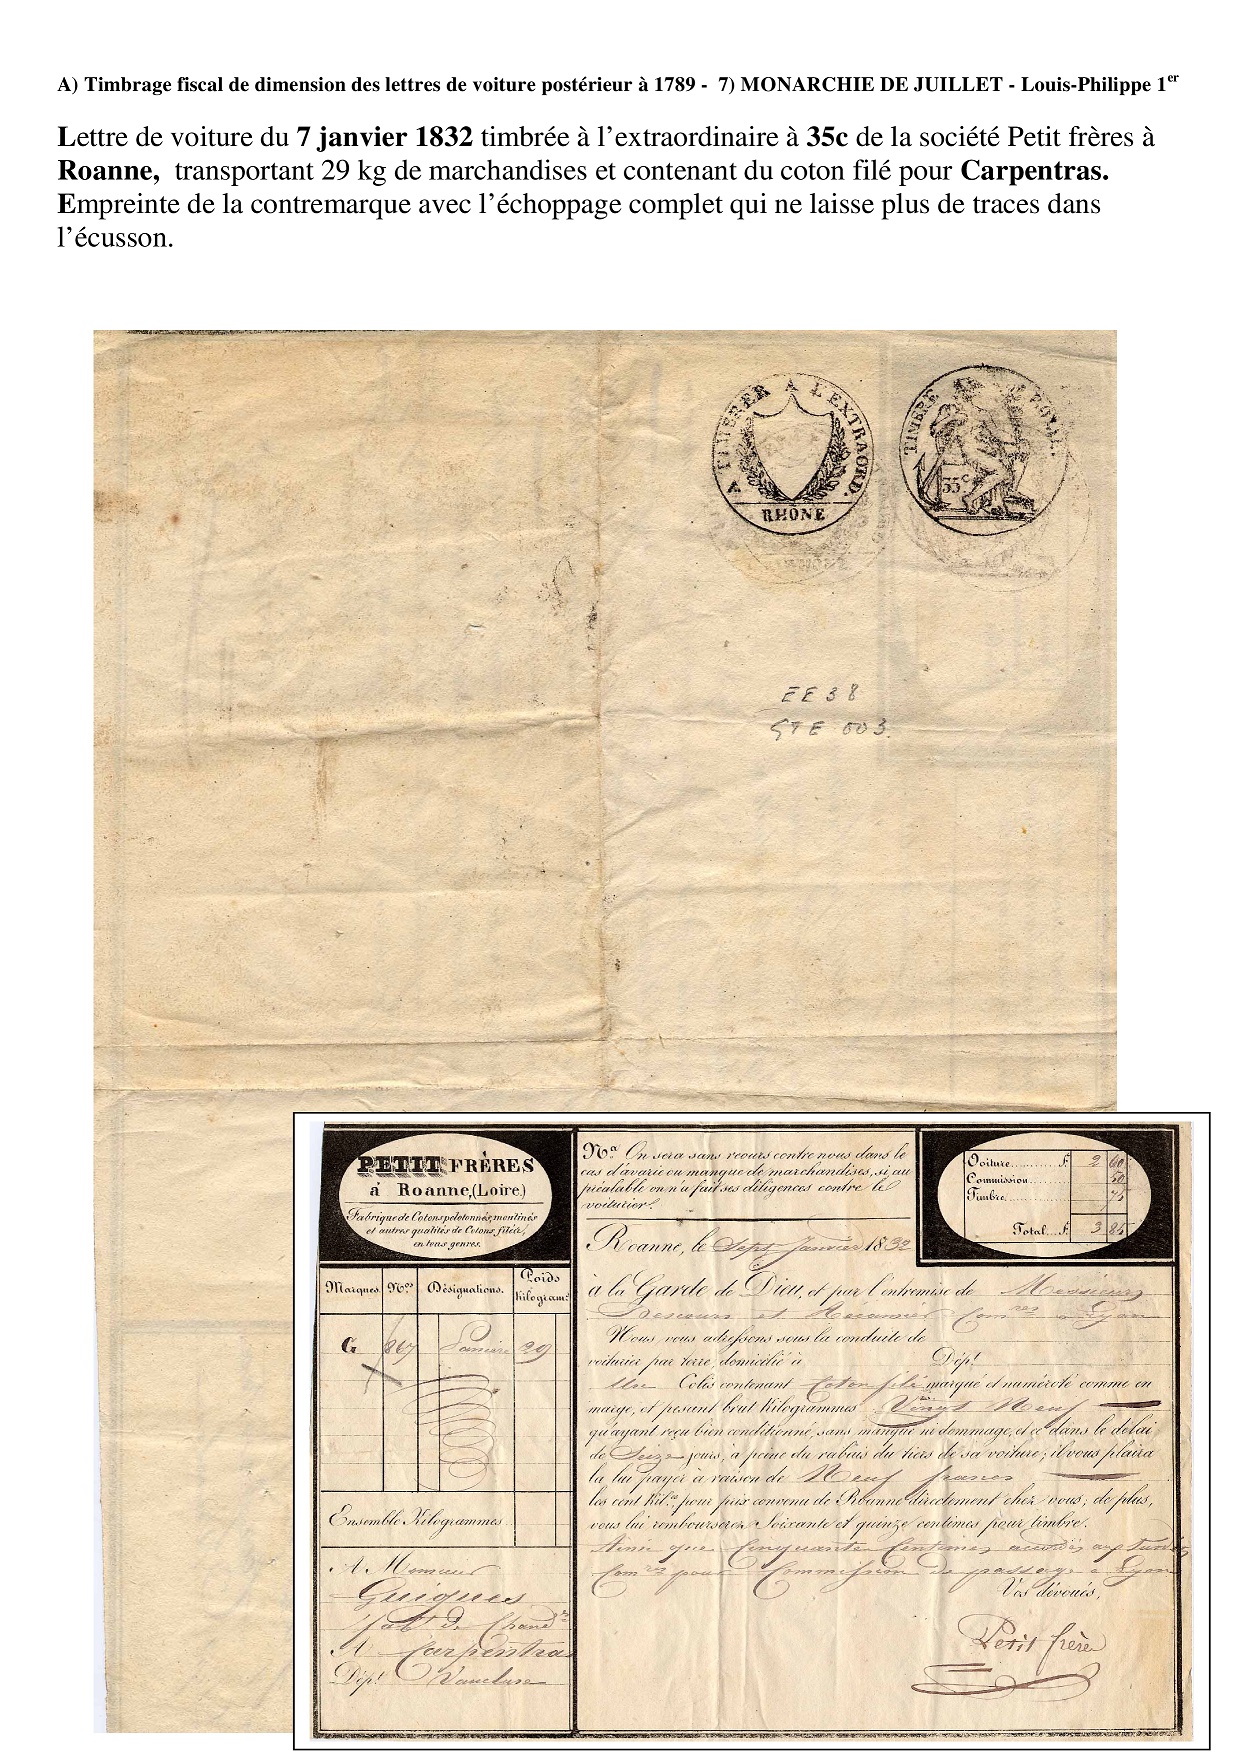 A) Timbrage fiscal de dimension des lettres de voiture postérieur à 1789 - 7) MONARCHIE DE JUILLET - Louis-Philippe 1er
Lettre de voiture du 7 janvier 1832 timbrée à l’extraordinaire à 35c de la société Petit frères à
Roanne, transportant 29 kg de marchandises et contenant du coton filé pour Carpentras.
Empreinte de la contremarque avec l’échoppage complet qui ne laisse plus de traces dans
l’écusson.
A TIMBRER A L'EXTRAORD.
RHÔNE
TIMBRE ROYAL.
35c
EE 38
PETIT FRÈRES
à Roanne, (Loire.)
Fabrique de Cotons pelotonnés, moulinés
et autres qualités de Cotons filés,
en tous genres.
Na. On sera sans recours contre nous dans le
cas d'avarie ou manque de marchandises, si au
préalable on n'a fait ses diligences contre le
voiturier.
Voiture.......... F. 2 60
Commission........ 50
Timbre........ 75
Total... F. 3 85
Roanne, le Sept Janvier 1832
Marques. Nos Désignations. Poids Kilogram:
G 867 29
à la Garde de Dieu, et par l'entremise de Messieurs
Lyon
Nous vous adressons sous la conduite de
voiturier par terre, domicilié à Dépt
Une Colis contenant Coton filé marqué et numéroté comme en
marge, et pesant brut Kilogrammes Vingt Neuf
qu'ayant reçu bien conditionné, sans manque ni dommage, et ce dans le délai
de Seize jours, à peine du rabais du tiers de sa voiture; il vous plaira
la lui payer à raison de Neuf francs
les cent Kil.es pour prix convenu de Roanne directement chez vous; de plus,
vous lui rembourserez Soixante et quinze centimes pour timbre.
Ainsi que Cinquante Centimes
pour Commission de passage à Lyon
Vos dévoués,
Petit frère
Ensemble Kilogrammes
A Monsieur
Guigues
fabt de Chand
A Carpentras
Dépt Vaucluse